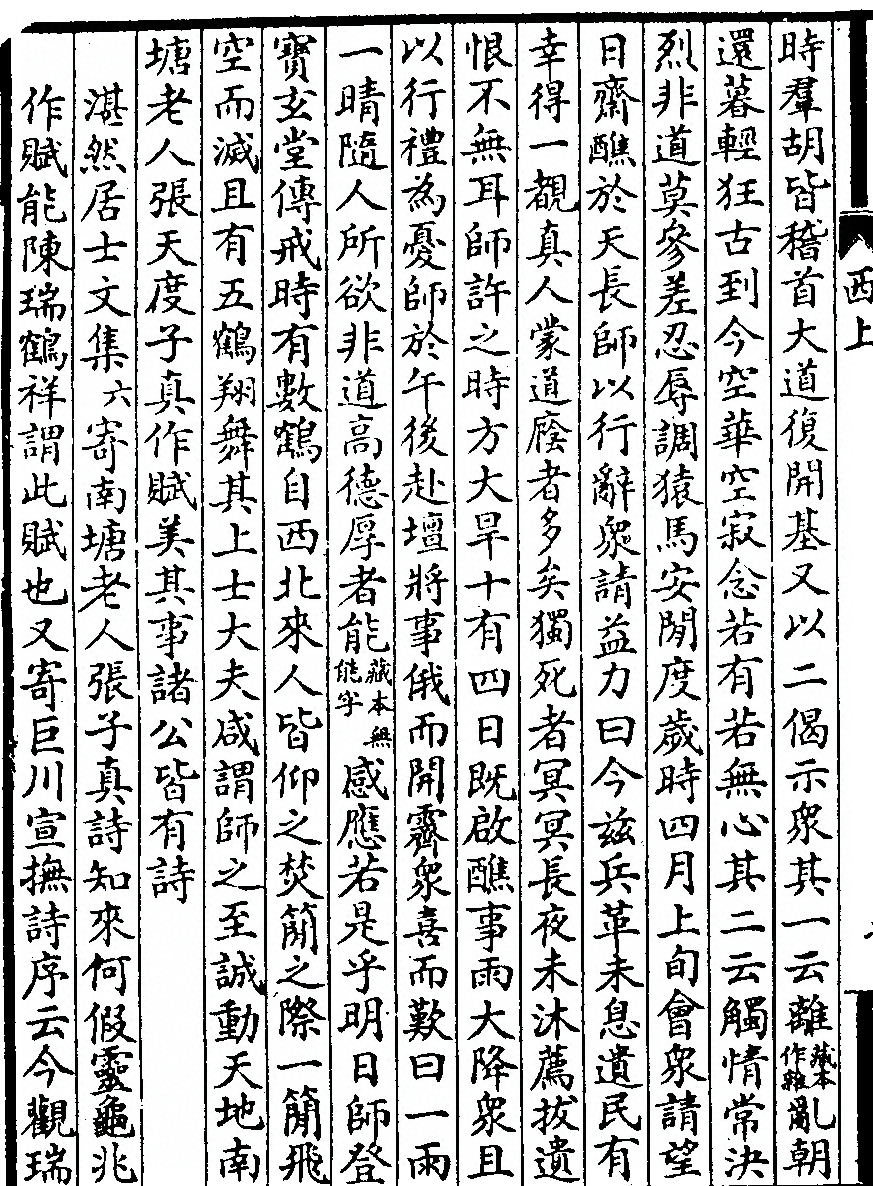 西上
時羣胡皆稽首大道復開基又以二偈示衆其一云離藏本作雜亂朝
還暮輕狂古到今空華空寂念若有若無心其二云觸情常決
烈非道莫參差忍辱調猿馬安閒度歲時四月上旬會衆請望
日齋醮於天長師以行辭衆請益力曰今兹兵革未息遺民有
幸得一覩真人蒙道廕者多矣獨死者冥冥長夜未沐薦拔遺
恨不無耳師許之時方大旱十有四日既啟醮事雨大降衆且
以行禮為憂師於午後赴壇將事俄而開霽衆喜而歎曰一雨
一晴隨人所欲非道高德厚者能藏本無能字感應若是乎明日師登
寶玄堂傳戒時有數鶴自西北來人皆仰之焚簡之際一簡飛
空而滅且有五鶴翔舞其上士大夫咸謂師之至誠動天地南
塘老人張天度子真作賦美其事諸公皆有詩
湛然居士文集六寄南塘老人張子真詩知來何假靈龜兆
作賦能陳瑞鶴祥謂此賦也又寄巨川宣撫詩序云今觀瑞